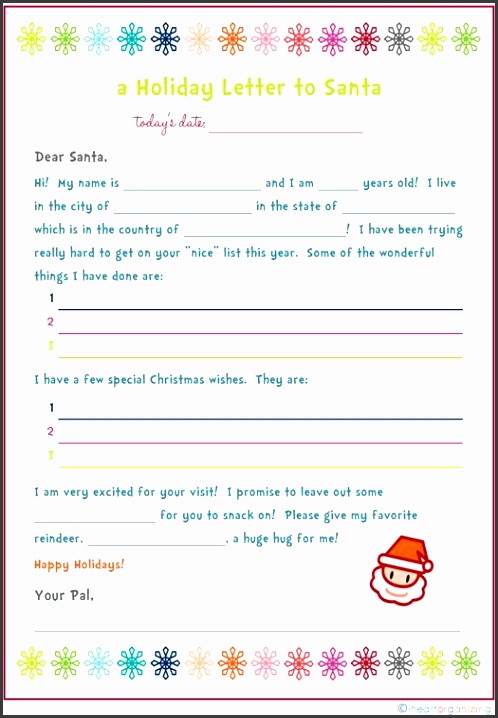 a Holiday Letter to Santa
today's date:
Dear Santa,
Hi! My name is and I am years old! I live
in the city of in the state of
which is in the country of ! I have been trying
really hard to get on your "nice" list this year. Some of the wonderful
things I have done are:
1
2
3
I have a few special Christmas wishes. They are:
1
2
3
I am very excited for your visit! I promise to leave out some
for you to snack on! Please give my favorite
reindeer, , a huge hug for me!
Happy Holidays!
Your Pal,
© iheartorganizing